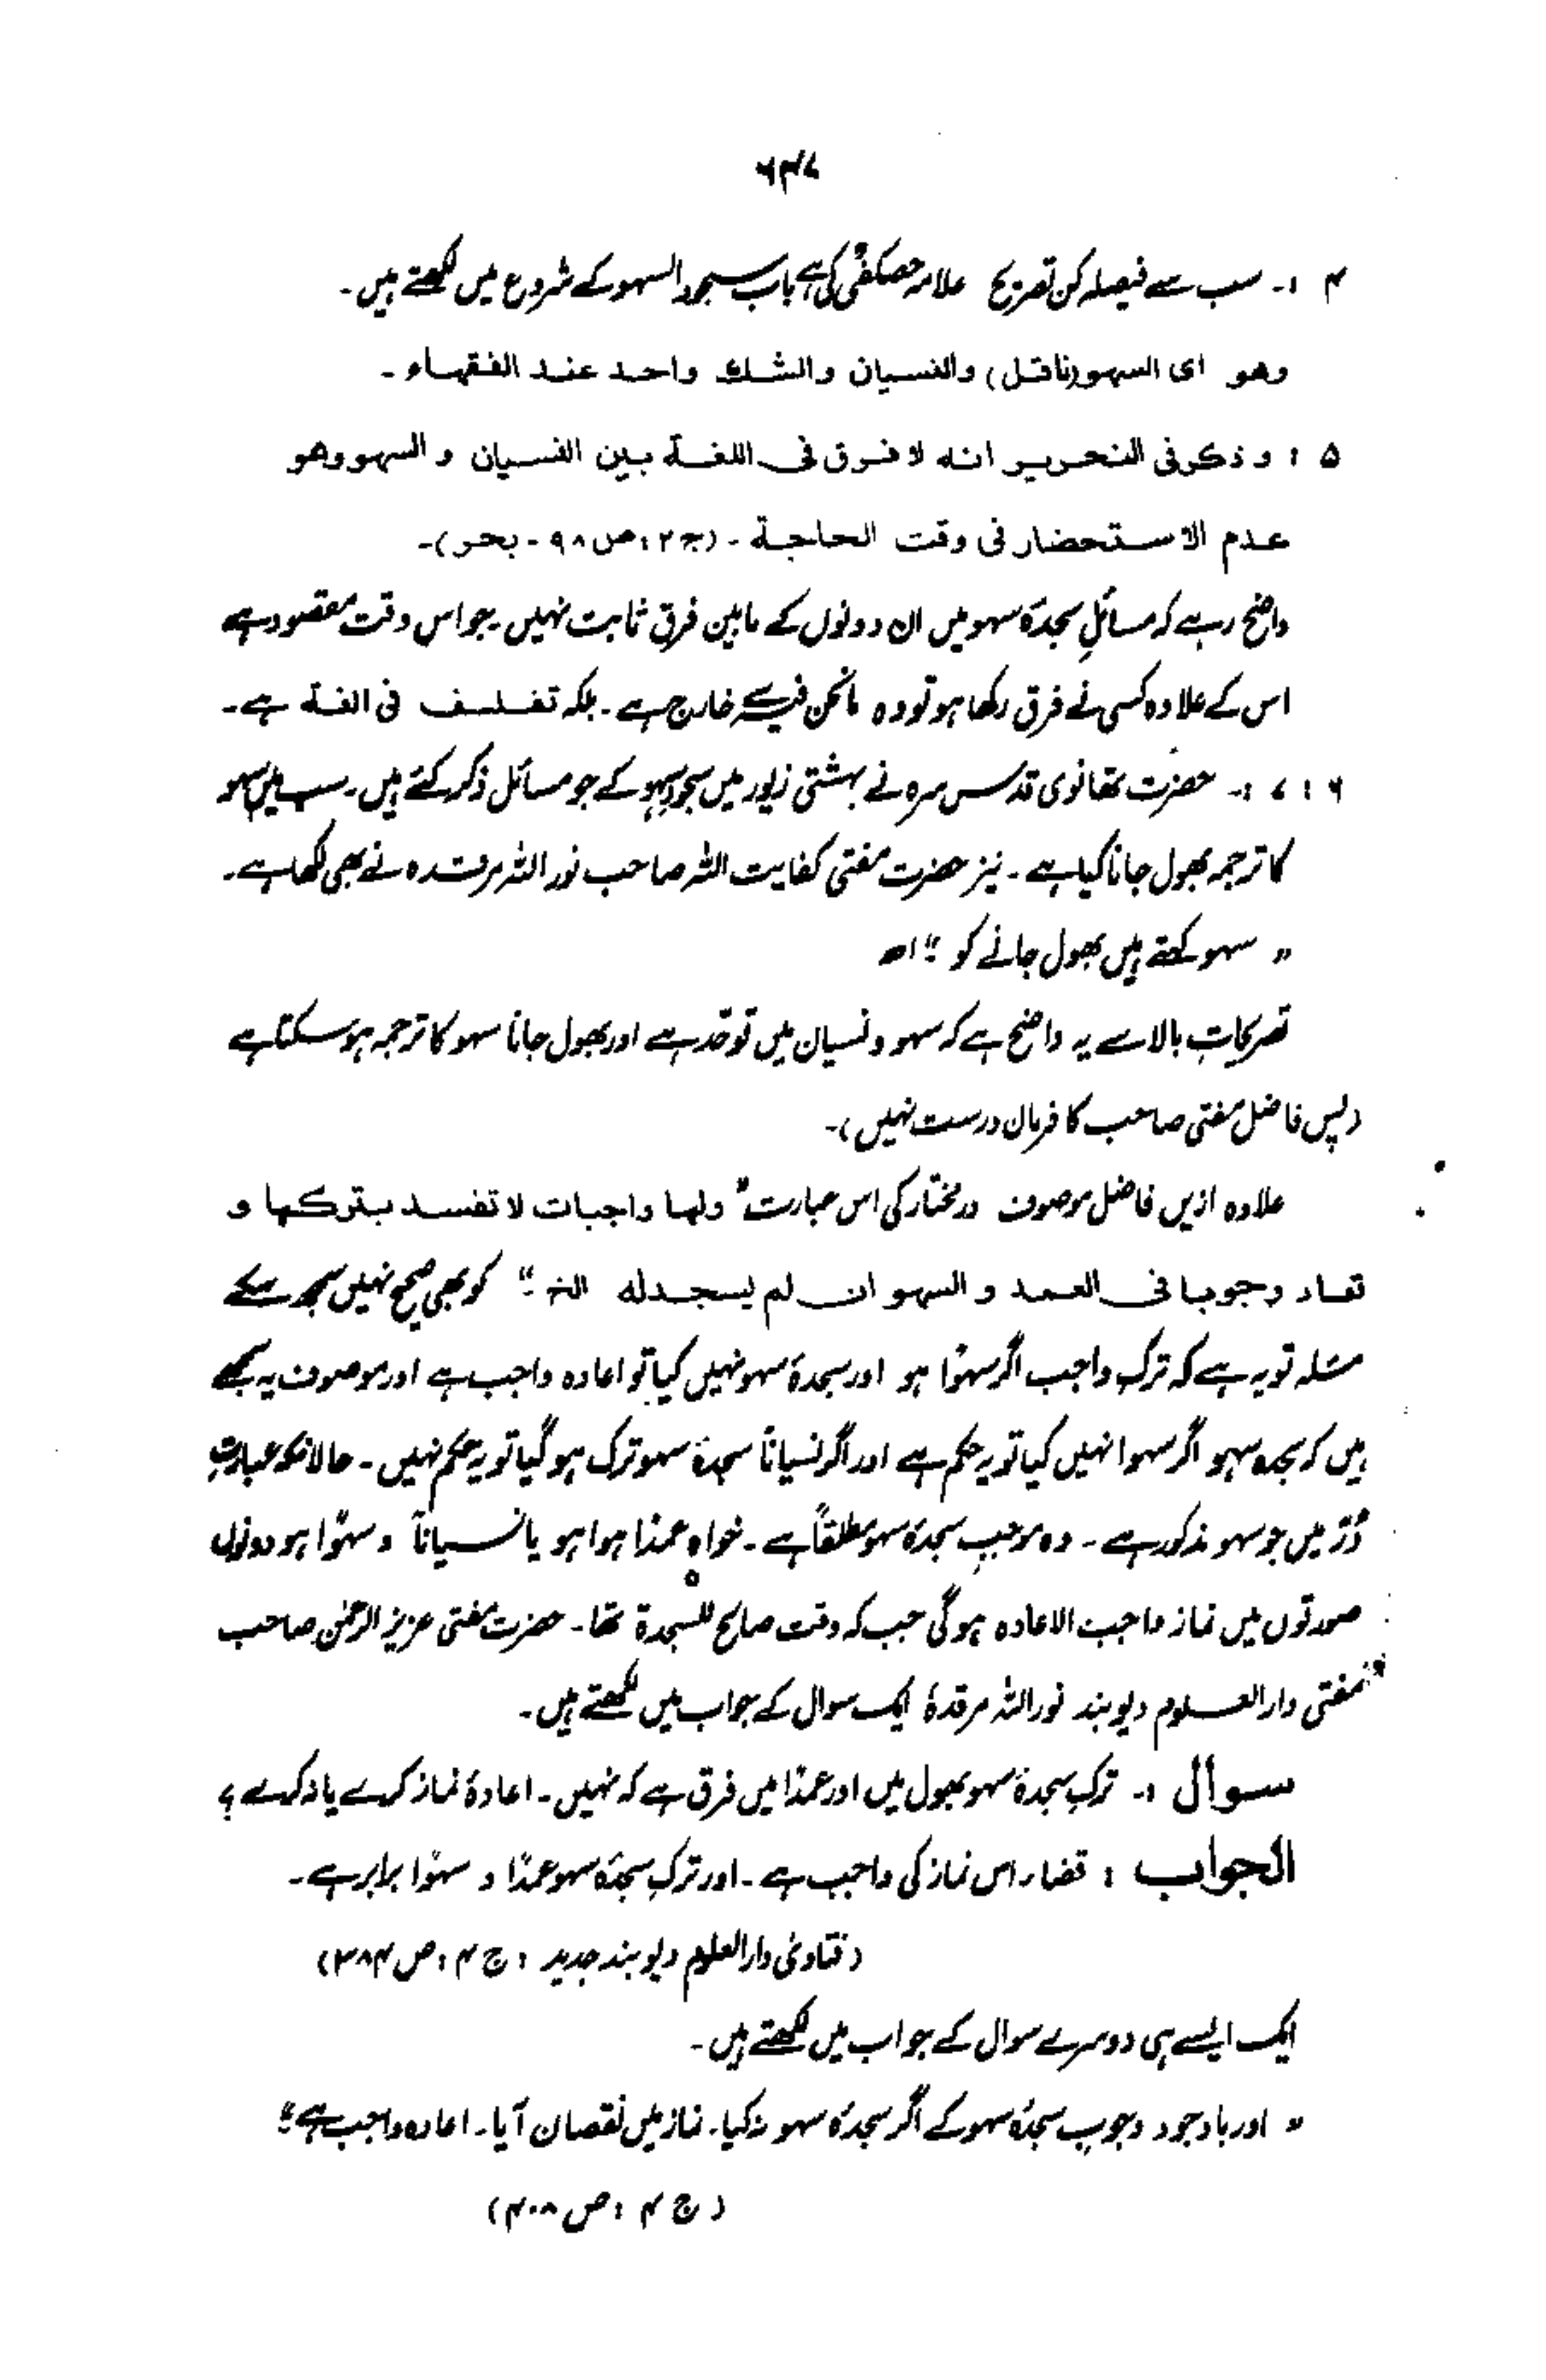 ۶۴۷
۴ :۔ سب سے فیصلہ کن تصریح علامہ حصکفیؒ کی ہے باب سجود السہو کے شروع میں لکھتے ہیں۔
وهو ای السهو (ناقل) والنسیان والشك واحد عند الفقهاء ۔
۵ : و ذکر فی التحریر انه لا فرق فی اللغة بین النسیان و السهو وهو
عدم الاستحضار فی وقت الحاجة ۔ (ج ۲ : ص ۹۸ ۔ بحر)۔
واضح رہے کہ مسائلِ سجدۂ سہو میں ان دونوں کے مابین فرق ثابت نہیں۔ جو اس وقت مقصود ہے
اس کے علاوہ کسی نے فرق رکھا ہو تو وہ مانحن فیہ سے خارج ہے۔ بلکہ تفلسف فی الغة ہے۔
۶ ؛ ۷ :۔ حضرت تھانوی قدس سرہ نے بہشتی زیور میں سجودِ سہو کے جو مسائل ذکر کئے ہیں۔ سب میں سہو
کا ترجمہ بھول جانا کیا ہے ۔ نیز حضرت مفتی کفایت اللہ صاحب نور اللہ مرقدہ نے بھی لکھا ہے۔
" سہو کہتے ہیں بھول جانے کو " اھ
تصریحاتِ بالا سے یہ واضح ہے کہ سہو و نسیان میں توحّد ہے اور بھول جانا سہو کا ترجمہ ہو سکتا ہے
(پس فاضل مفتی صاحب کا فرمان درست نہیں)۔
علاوہ ازیں فاضل موصوف درمختار کی اس عبارت " ولها واجبات لا تفسد بترکها و
تعاد وجوبا فی العمد و السهو ان لم یسجد له الخ " کو بھی صحیح نہیں سمجھ سکے
مسئلہ تو یہ ہے کہ ترکِ واجب اگر سہوًا ہو اور سجدۂ سہو نہیں کیا تو اعادہ واجب ہے اور موصوف یہ سمجھے
ہیں کہ سجدہ سہو اگر سہوا نہیں کیا تو یہ حکم ہے اور اگر نسیاناً سجدۂ سہو ترک ہو گیا تو یہ حکم نہیں۔ حالانکہ عبارتِ
دُرّ میں جو سہو مذکور ہے ۔ وہ موجبِ سجدۂ سہو مطلقاً ہے ۔ خواہ عمدًا ہوا ہو یا نسیاناً و سہوًا ہو دونوں
صورتوں میں نماز واجب الاعادہ ہو گی جب کہ وقت صالح للسجدة تھا۔ حضرت مفتی عزیز الرحمٰن صاحب
مفتی دارالعلوم دیوبند نور اللہ مرقدہٗ ایک سوال کے جواب میں لکھتے ہیں۔
سوال :۔ ترکِ سجدۂ سہو بھول میں اور عمدًا میں فرق ہے کہ نہیں۔ اعادۂ نماز کرے یا نہ کرے ؟
الجواب : قضاء اس نماز کی واجب ہے ۔ اور ترکِ سجدۂ سہو عمدًا و سہوًا برابر ہے۔
(فتاویٰ دارالعلوم دیوبند جدید : ج ۴ : ص ۳۸۴)
ایک ایسے ہی دوسرے سوال کے جواب میں لکھتے ہیں۔
" اور باوجود وجوبِ سجدۂ سہو کے اگر سجدۂ سہو نہ کیا۔ نماز میں نقصان آیا۔ اعادہ واجب ہے "
(ج ۴ : ص ۴۰۸)